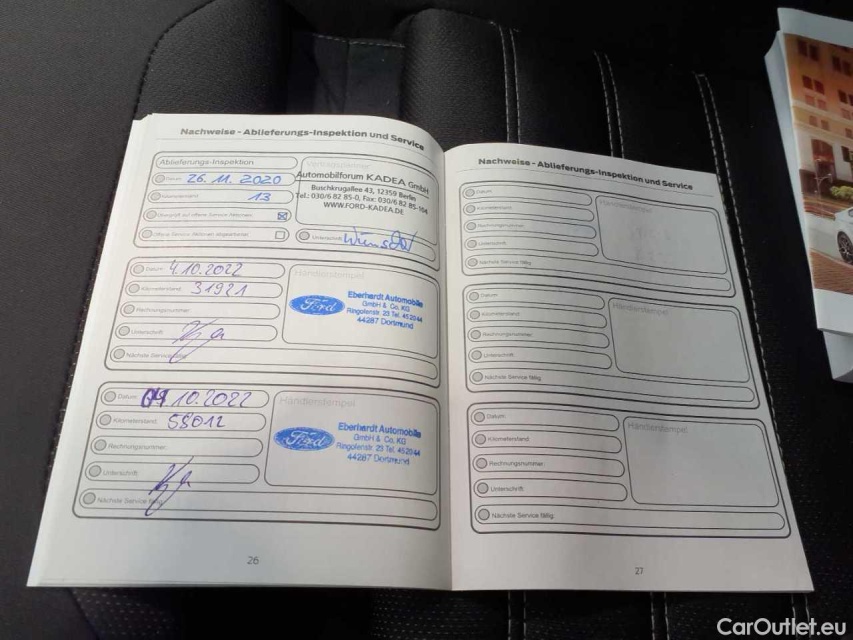 Nachweise - Ablieferungs-Inspektion und Service
Ablieferungs-Inspektion
Datum: 26.11.2020
Kilometerstand: 13
Überprüft auf offene Service-Aktionen
Offene Service-Aktionen abgearbeitet
Automobilforum KADEA GmbH
Buschkrugallee 43, 12359 Berlin
Tel.: 030/6 82 85-0, Fax: 030/6 82 85-164
WWW.FORD-KADEA.DE
Unterschrift:
Datum: 4.10.2022
Kilometerstand: 31921
Rechnungsnummer:
Unterschrift:
Nächste Service fällig:
Händlerstempel
Ford
Eberhardt Automobile
GmbH & Co. KG
Ringofenstr. 23 Tel. 452044
44287 Dortmund
Datum: 04.10.2022
Kilometerstand: 58012
Rechnungsnummer:
Unterschrift:
Nächste Service fällig:
Händlerstempel
Ford
Eberhardt Automobile
GmbH & Co. KG
Ringofenstr. 23 Tel. 452044
44287 Dortmund
26
Nachweise - Ablieferungs-Inspektion und Service
Datum:
Kilometerstand:
Rechnungsnummer:
Unterschrift:
Nächste Service fällig:
Händlerstempel
Datum:
Kilometerstand:
Rechnungsnummer:
Unterschrift:
Nächste Service fällig:
Händlerstempel
Datum:
Kilometerstand:
Rechnungsnummer:
Unterschrift:
Nächste Service fällig:
Händlerstempel
27
CarOutlet.eu